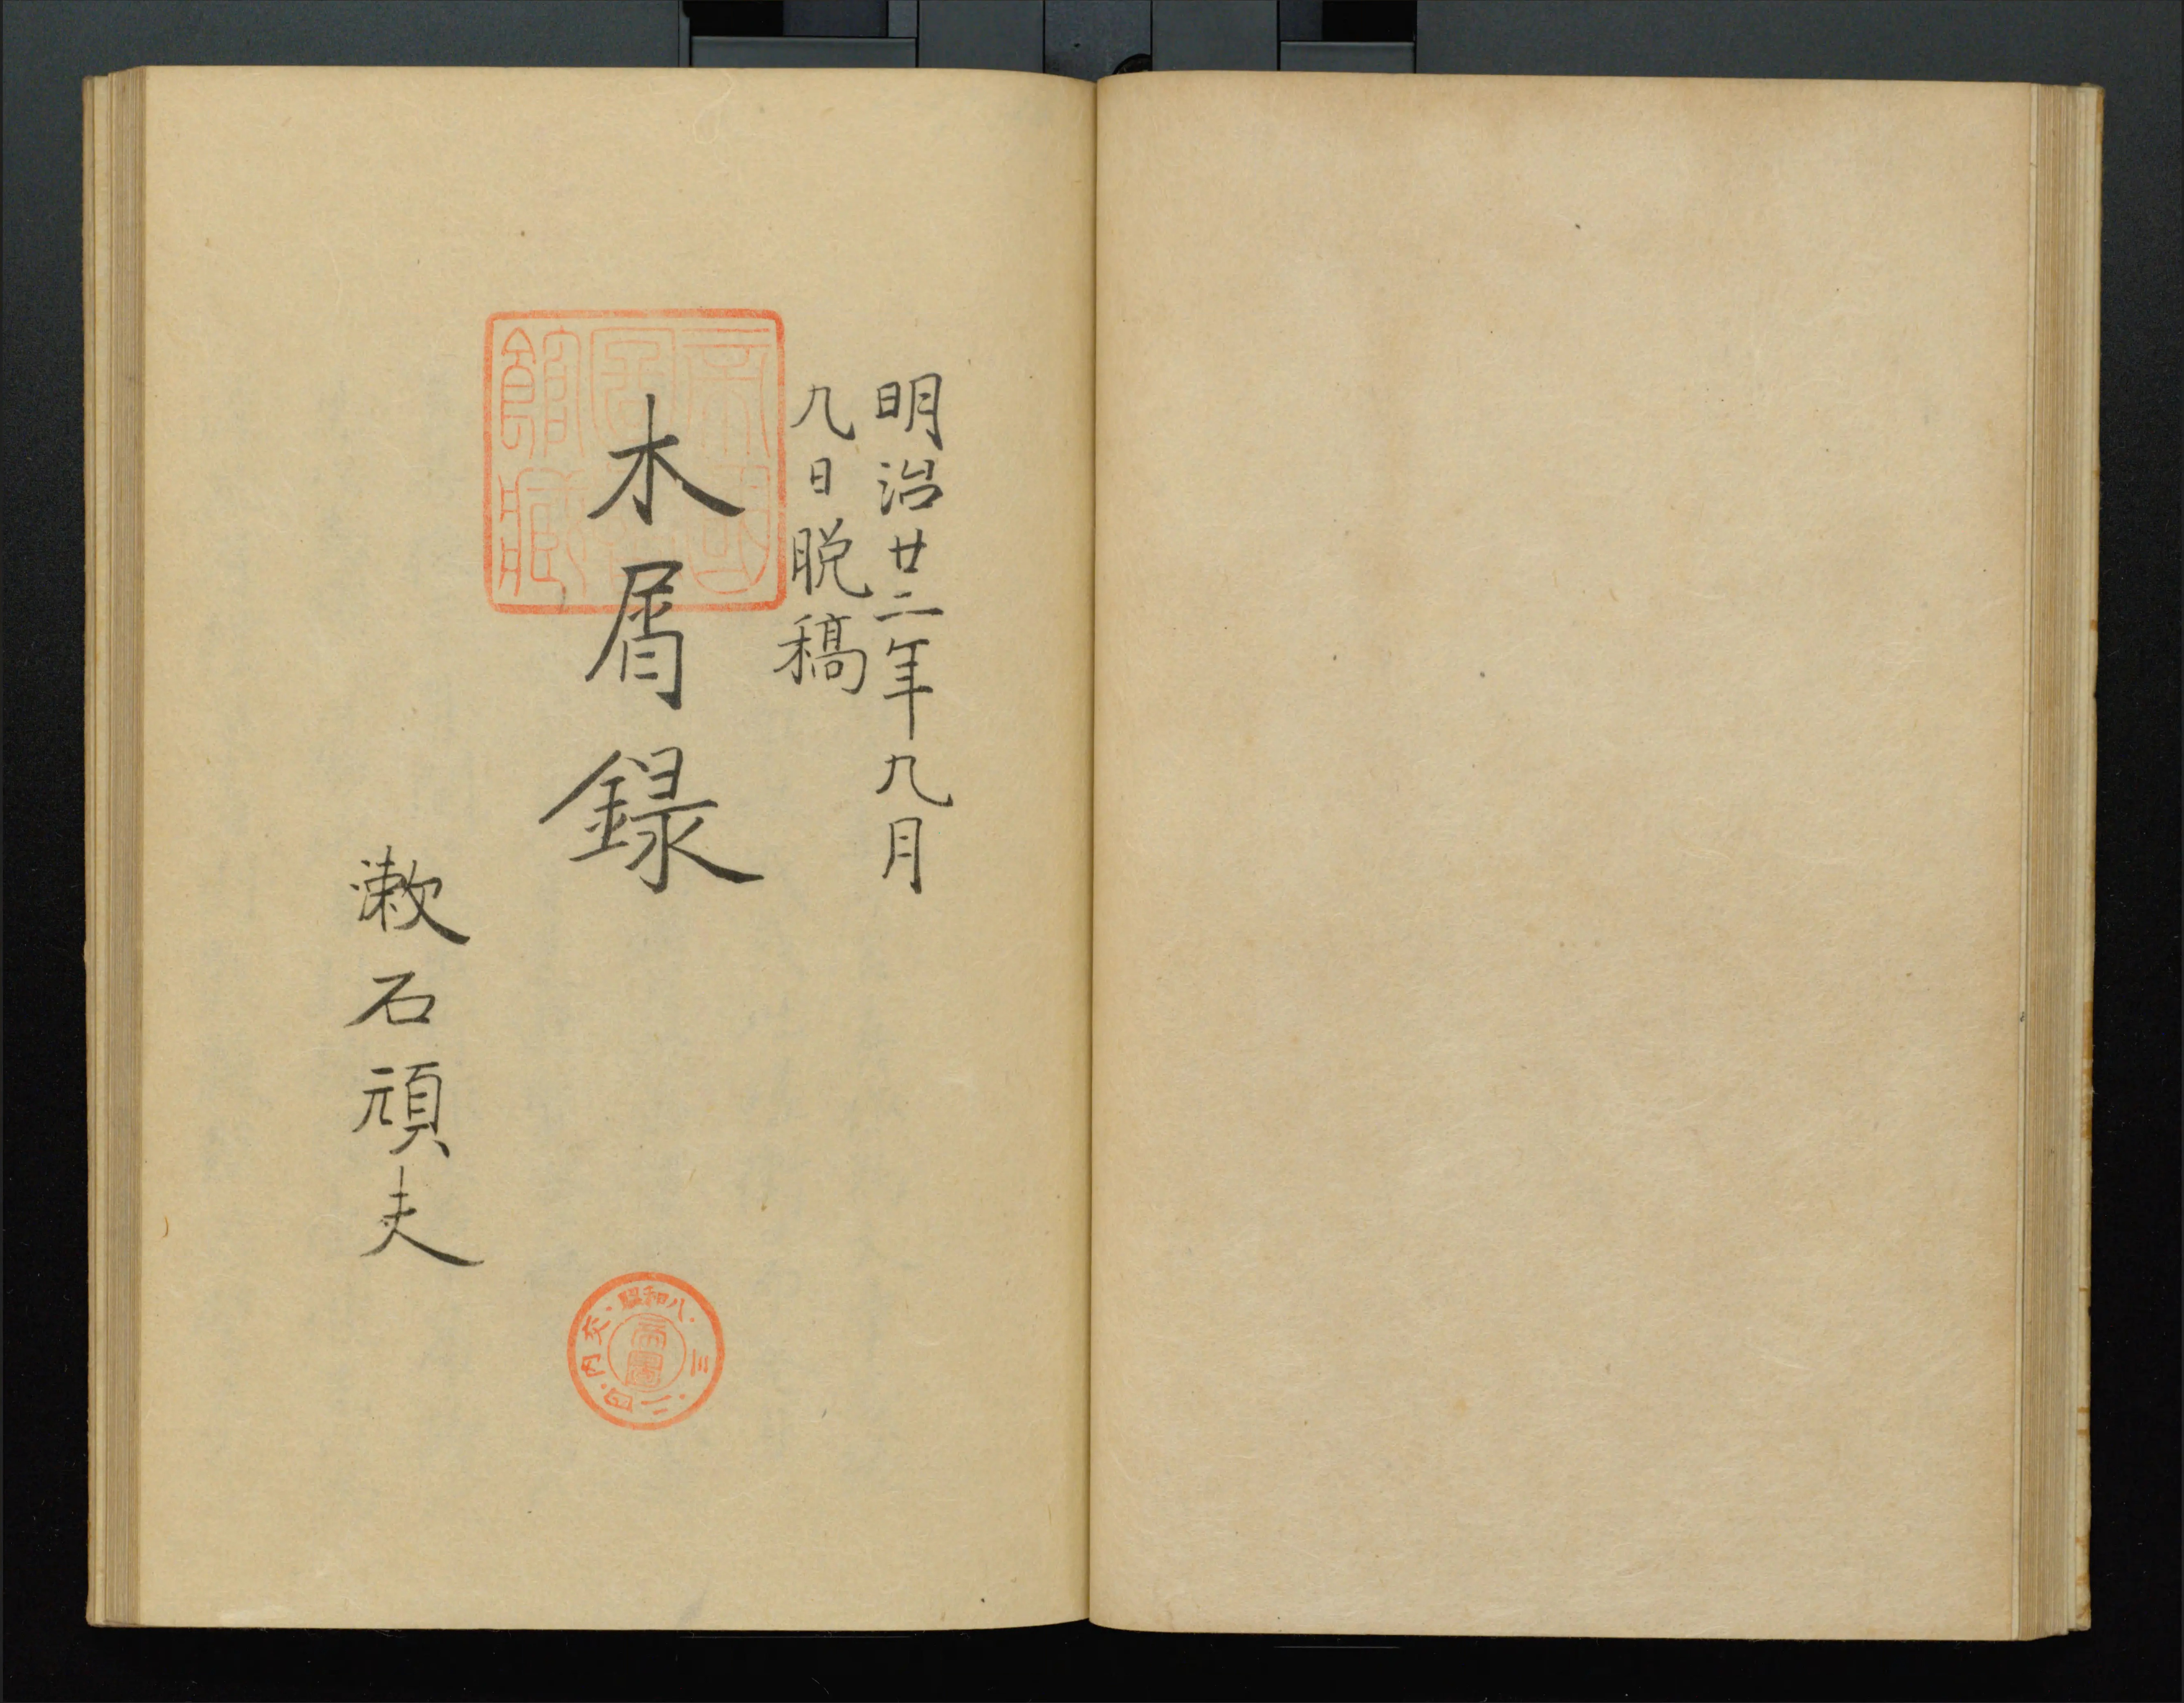 明治廿二年九月
九日脱稿
木屑録
漱石頑夫
帝國
圖書
館藏
昭和八・三・二四・内交・
帝圖